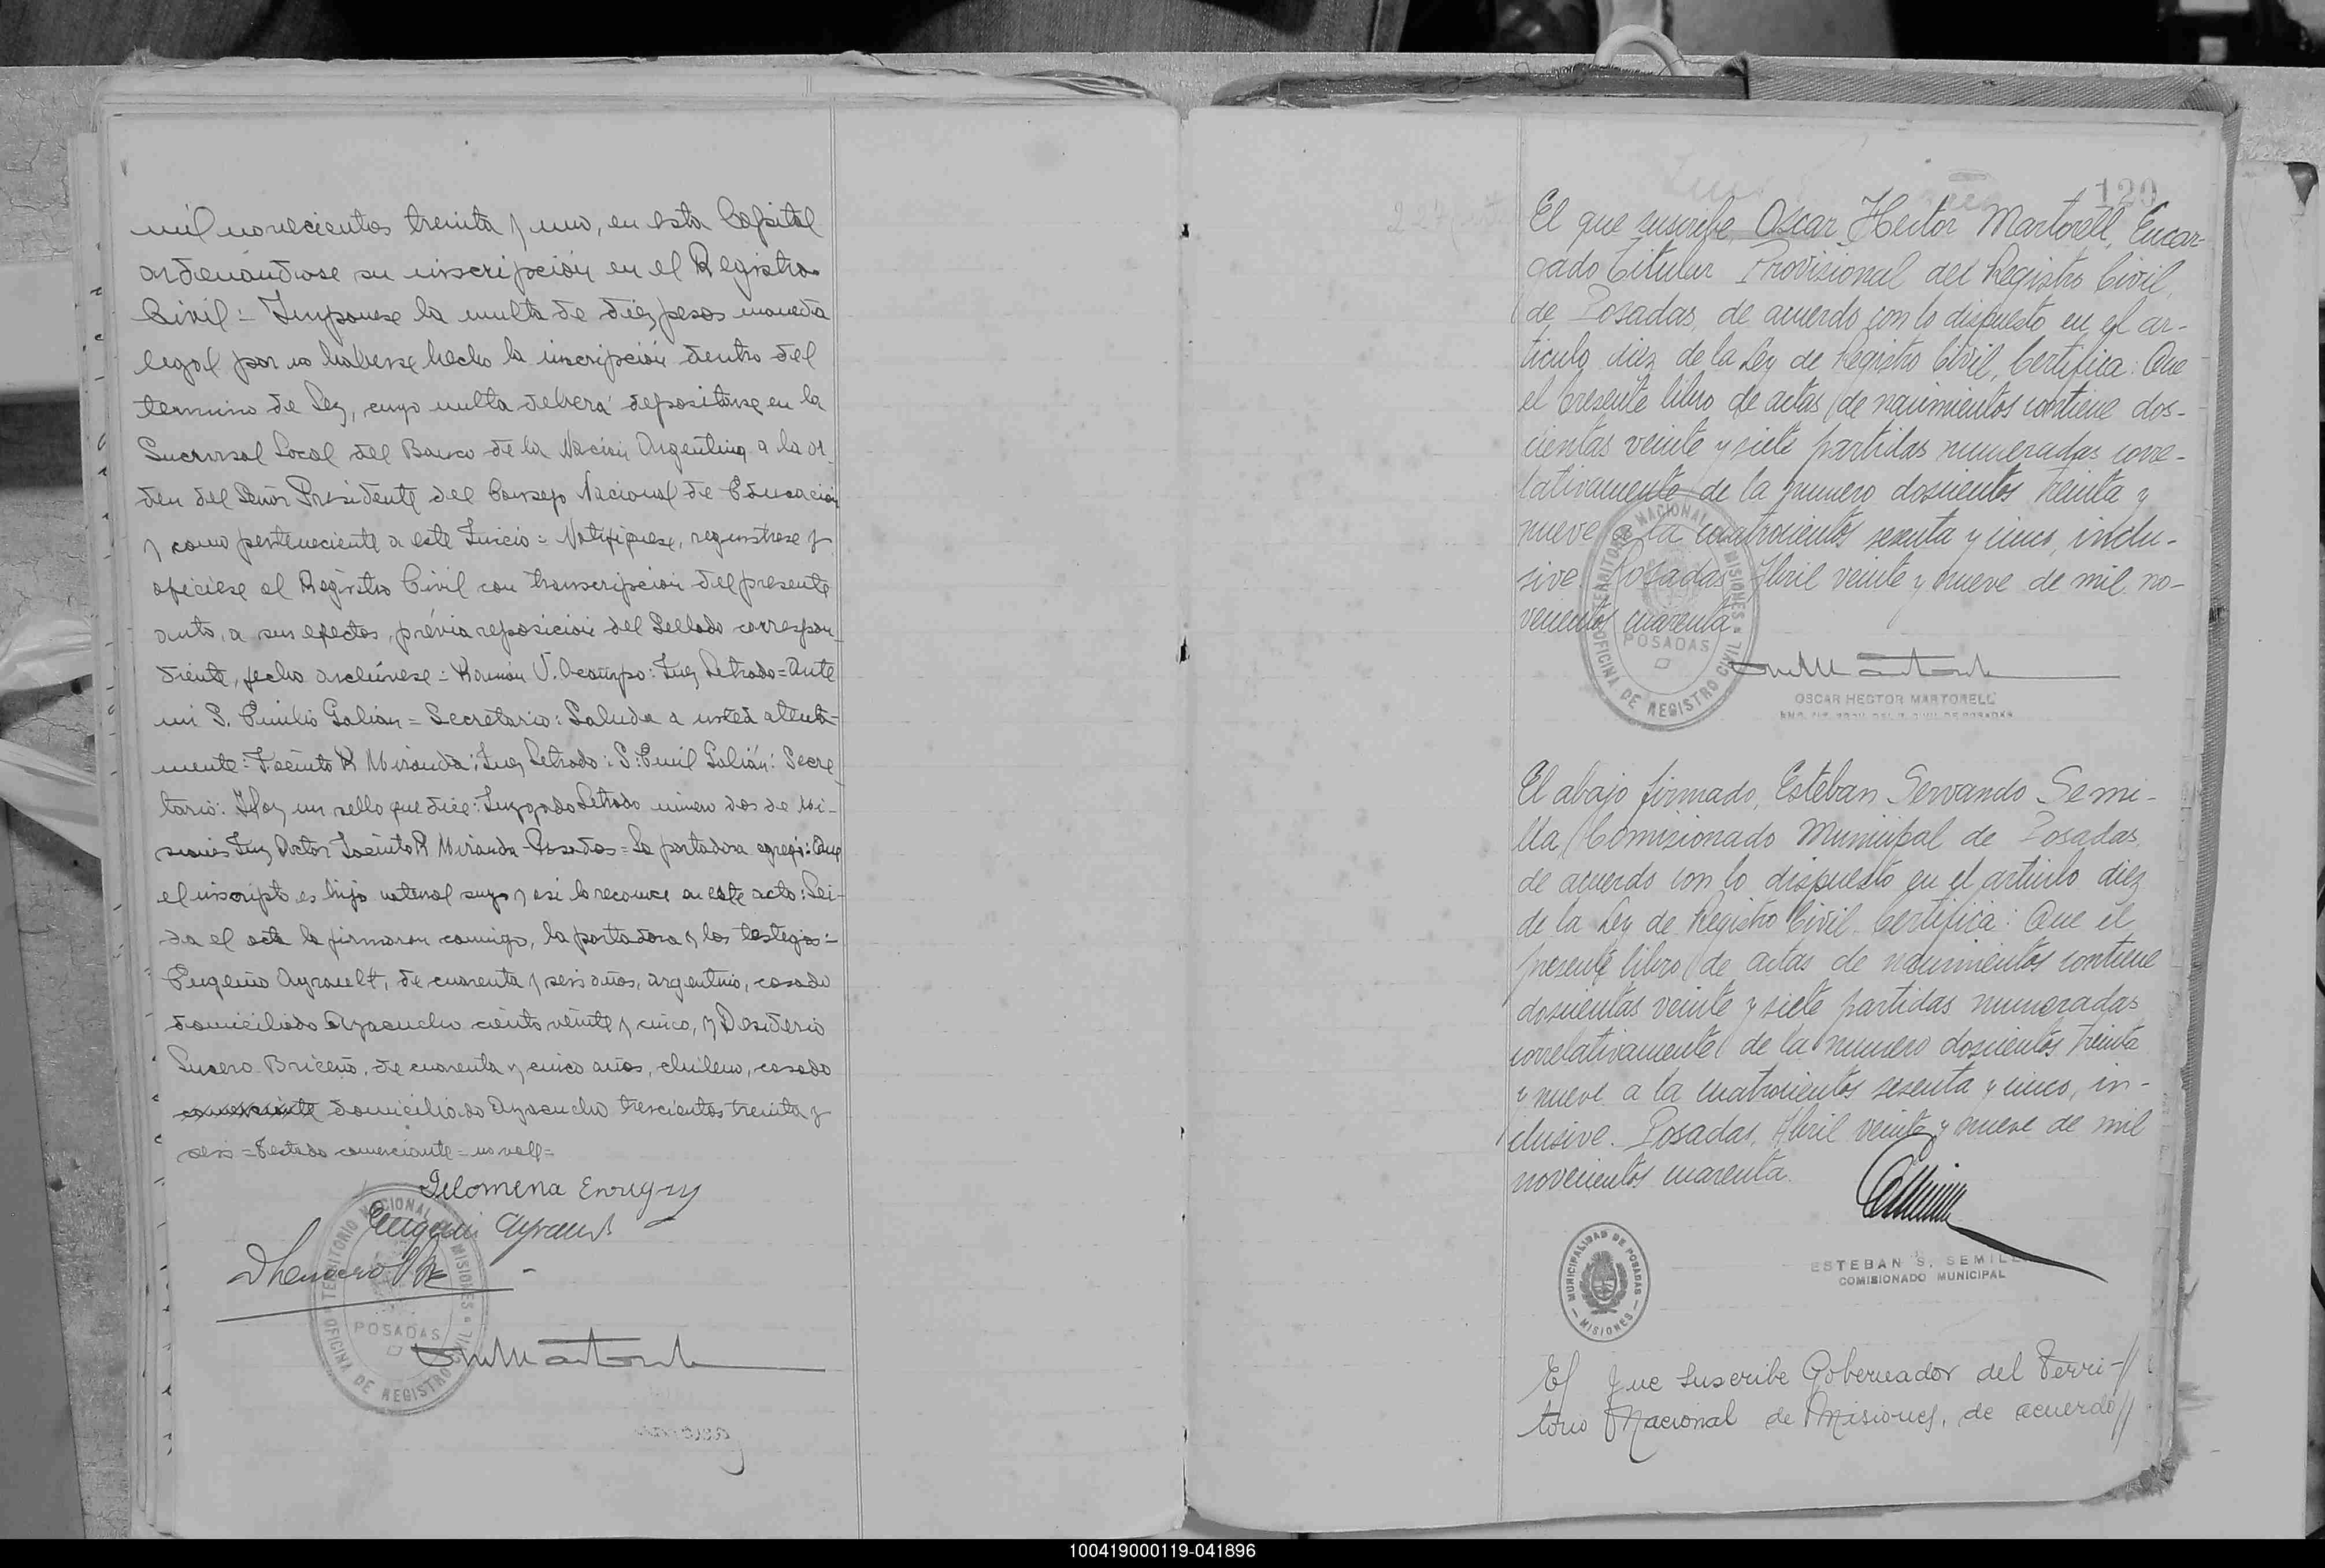 mil novecientos treinta y uno, en esta Capital
ordenándose su inscripción en el Registro
Civil = Impónese la multa de diez pesos moneda
legal por no haberse hecho la inscripción dentro del
termino de Ley, cuya multa deberá depositarse en la
Sucursal Local del Banco de la Nación Argentina a la or-
den del Señor Presidente del Consejo Nacional de Educación
y como perteneciente a este Juicio = Notifiquese, registrese y
oficiese al Registro Civil con transcripción del presente
auto, a sus efectos, prévia reposición del Sellado correspon-
diente, fecho archívese = Ramón V. Ocampo: Juez Letrado = Ante
mi S. Emilio Galián = Secretario: Saluda a usted atenta-
mente: Jacinto R Miranda; Juez Letrado: S. Emil Galián: Secre
tario: Hay un sello que dice: Juzgado Letrado número dos de Mi-
siones Juez Doctor Jacinto R Miranda - Posadas = La portadora agregó: Que
el inscripto es hijo natural suyo y así lo reconoce en este acto: Lei-
da el acta la firmaron conmigo, la portadora y los testigos:
Eugenio Ayrault, de cuarenta y seis años, argentino, casado
domiciliado Ayacucho ciento veinte y cinco, y Desiderio
Lucero Briceño, de cuarenta y cinco años, chileno, casado
comerciante domiciliado Ayacucho trescientos treinta y
seis = Testado comerciante = no vale =
Filomena
Eugenio Ayrault
TERRITORIO NACIONAL MISIONES
POSADAS
OFICINA DE REGISTRO CIVIL
120
El que suscribe, Oscar Hector Martorell, Encar-
gado Titular Provisional del Registro Civil
de Posadas, de acuerdo con lo dispuesto en el ar-
ticulo diez de la Ley de Registro Civil, Certifica: Que
el presente libro de actas de nacimientos contiene dos-
cientas veinte y siete partidas numeradas corre-
lativamente de la numero doscientos treinta y
nueve a la cuatrocientos sesenta y cinco, inclu-
sive. Posadas, Abril veinte y nueve de mil no-
vecientos cuarenta.
TERRITORIO NACIONAL MISIONES
POSADAS
OFICINA DE REGISTRO CIVIL
OSCAR HECTOR MARTORELL
El abajo firmado, Esteban Servando Semi-
lla, Comisionado Municipal de Posadas,
de acuerdo con lo dispuesto en el articulo diez
de la Ley de Registro Civil, Certifica: Que el
presente libro de actas de nacimientos contiene
doscientas veinte y siete partidas numeradas
correlativamente de la numero doscientos treinta
y nueve a la cuatrocientos sesenta y cinco, in-
clusive. Posadas, Abril veinte y nueve de mil
novecientos cuarenta.
MUNICIPALIDAD DE POSADAS
MISIONES
ESTEBAN S. SEMILLA
COMISIONADO MUNICIPAL
El que suscribe Gobernador del Terri-//
torio Nacional de Misiones, de acuerdo//
100419000119-041896